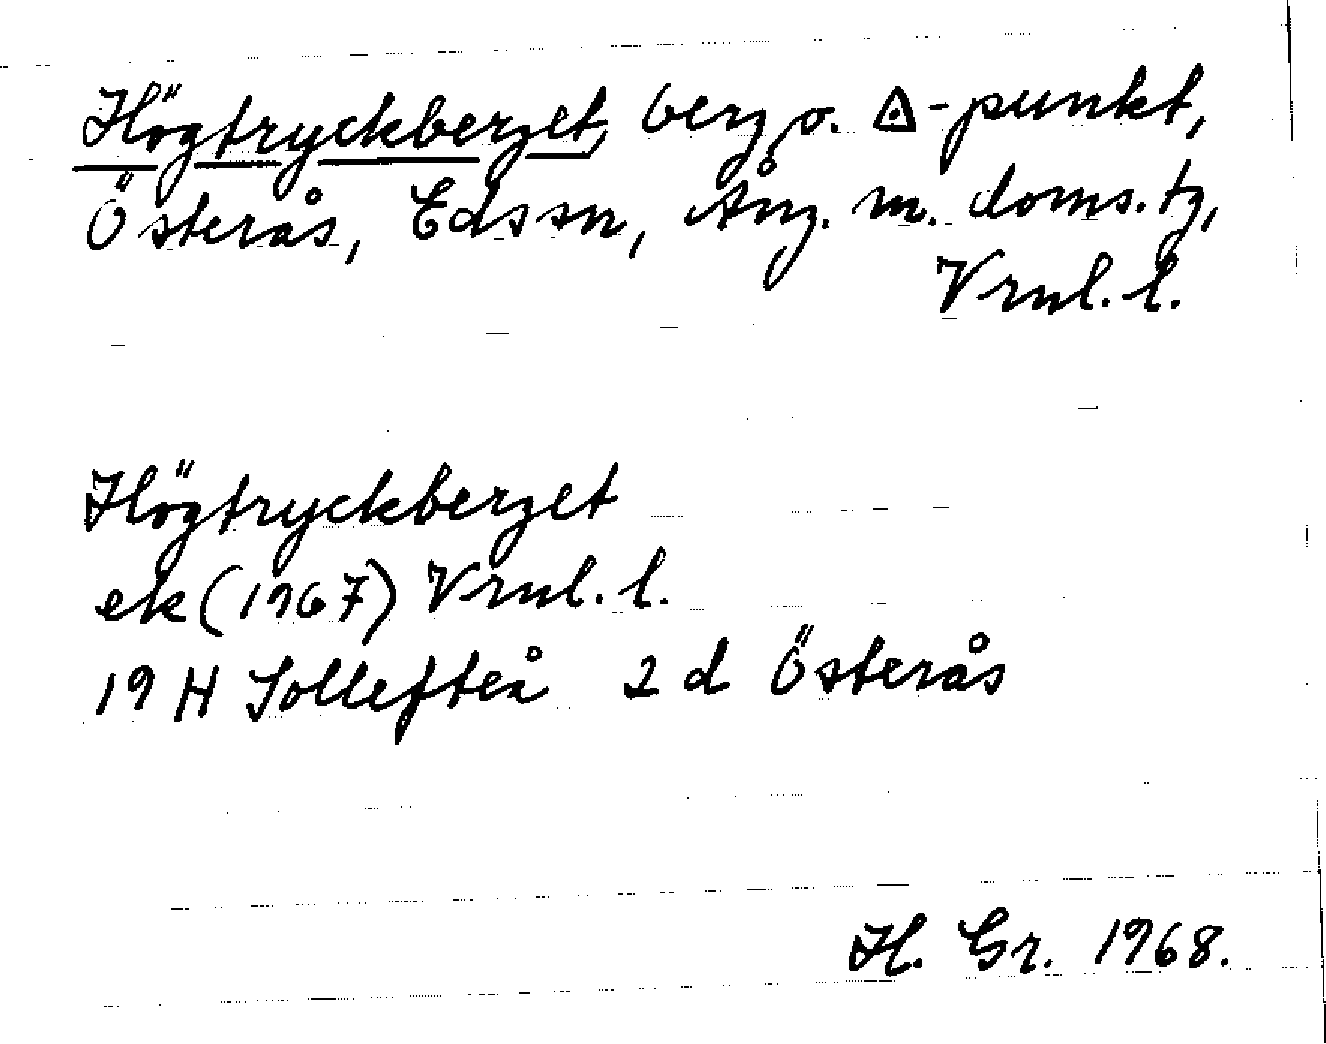 Högtryckberget, berg o. △-punkt,
Österås, Eds sn, Ång. m. doms.tg,
Vrnl. l.
Högtryckberget
ek (1967) Vrnl. l.
19 H Sollefteå 2 d Österås
H. Gr. 1968.